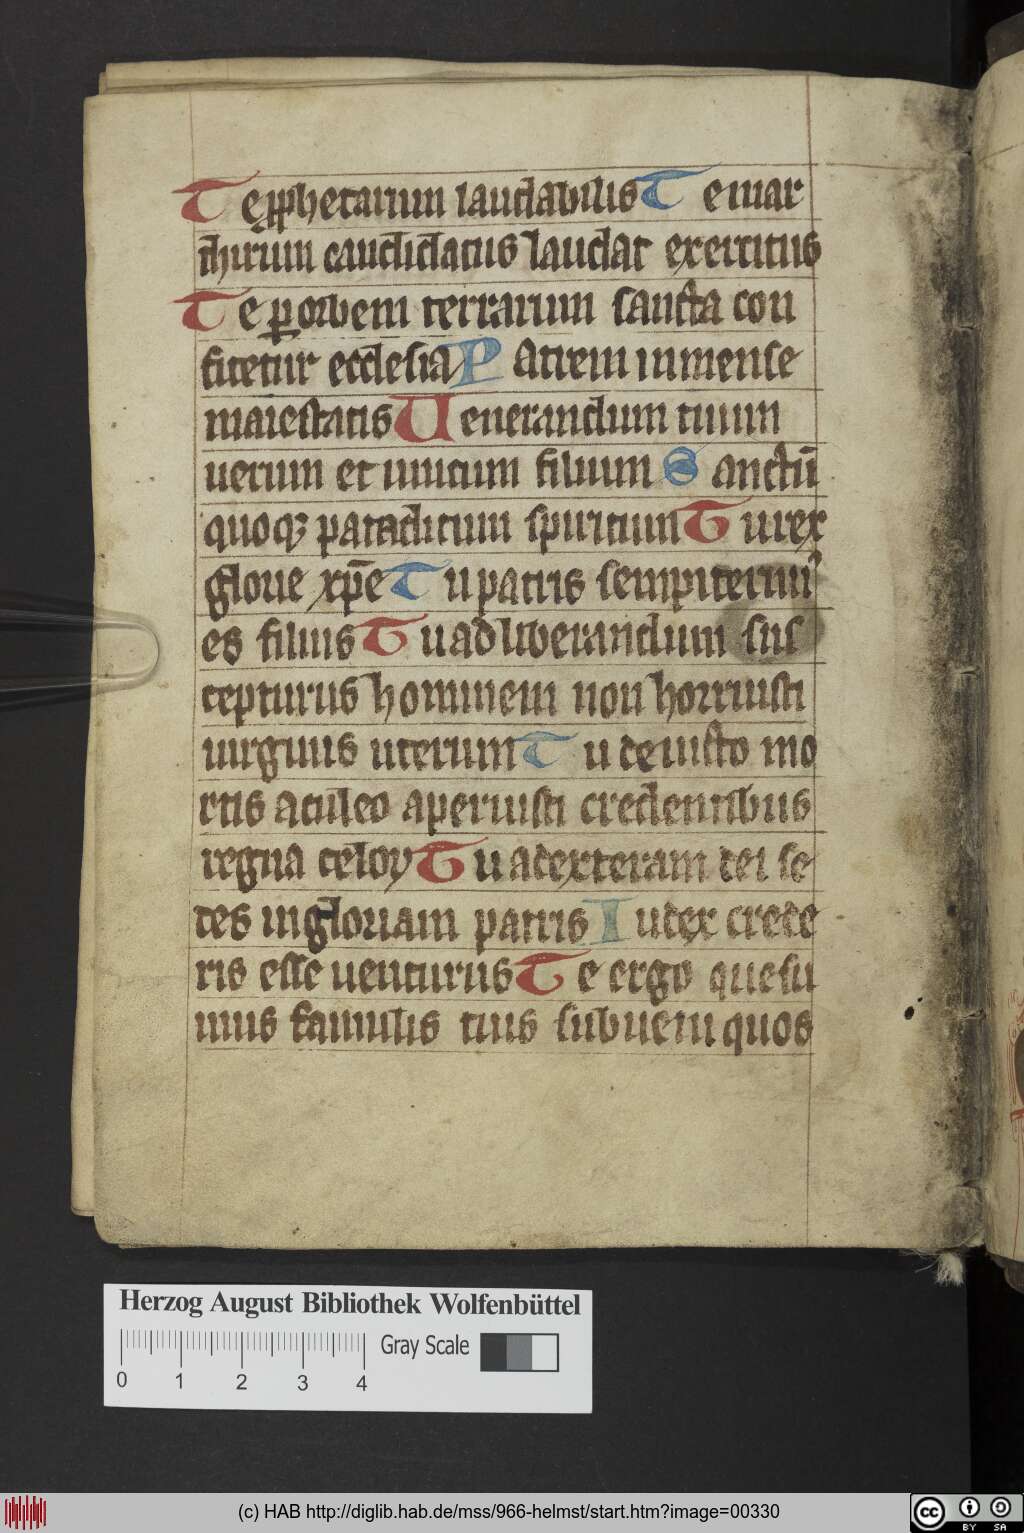 Te ꝓphetarum laudabilis Te mar
thirum candidatus laudat exercitus
Te ꝑ orbem terrarum sancta con
fitetur ecclesia Patrem inmense
maiestatis Uenerandum tuum
uerum et unicum filium Sanctū
quoqꝫ paraclitum spiritum Tu rex
glorie xp̄e Tu patris sempiternus
es filius Tu ad liberandum sus
cepturus hominem non horruisti
uirginis uterum Tu deuicto mo
rtis aculeo aperuisti credentibus
regna celoꝝ Tu adexteram dei se
des in gloriam patris Iudex crede
ris esse uenturus Te ergo quesu
mus famulis tuis subueni quos
Herzog August Bibliothek Wolfenbüttel
Gray Scale
0 1 2 3 4
(c) HAB http://diglib.hab.de/mss/966-helmst/start.htm?image=00330
cc BY SA